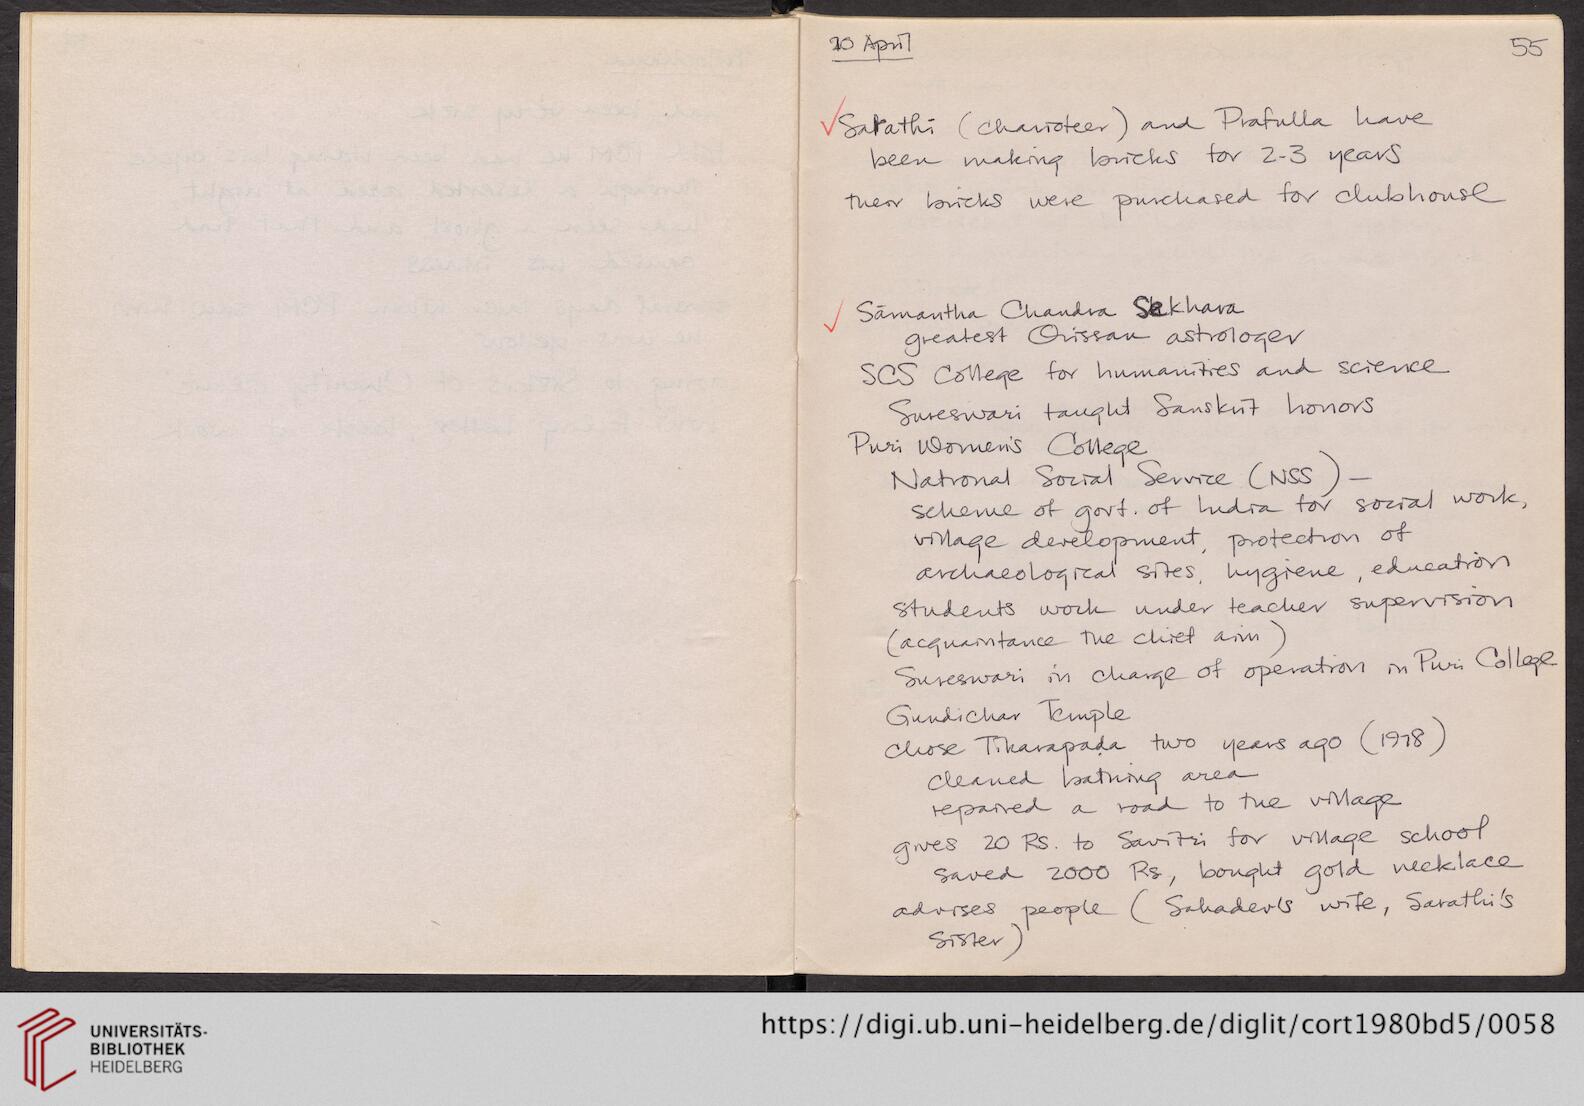 20 April
55
Sarathi (charioteer) and Prafulla have
been making bricks for 2-3 years
their bricks were purchased for clubhouse
Sāmantha Chandra Sekhara
greatest Orissan astrologer
SCS College for humanities and science
Sureswari taught Sanskrit honors
Puri Women's College
National Social Service (NSS) –
scheme of govt. of India for social work,
village development, protection of
archaeological sites, hygiene, education
students work under teacher supervision
(acquaintance the chief aim)
Sureswari in charge of operation in Puri College
Gundichar Temple
chose Tikarapada two years ago (1978)
cleaned bathing area
repaired a road to the village
gives 20 Rs. to Savitri for village school
saved 2000 Rs, bought gold necklace
advises people (Sahadev's wife, Sarathi's
sister)
UNIVERSITÄTS-
BIBLIOTHEK
HEIDELBERG
https://digi.ub.uni-heidelberg.de/diglit/cort1980bd5/0058